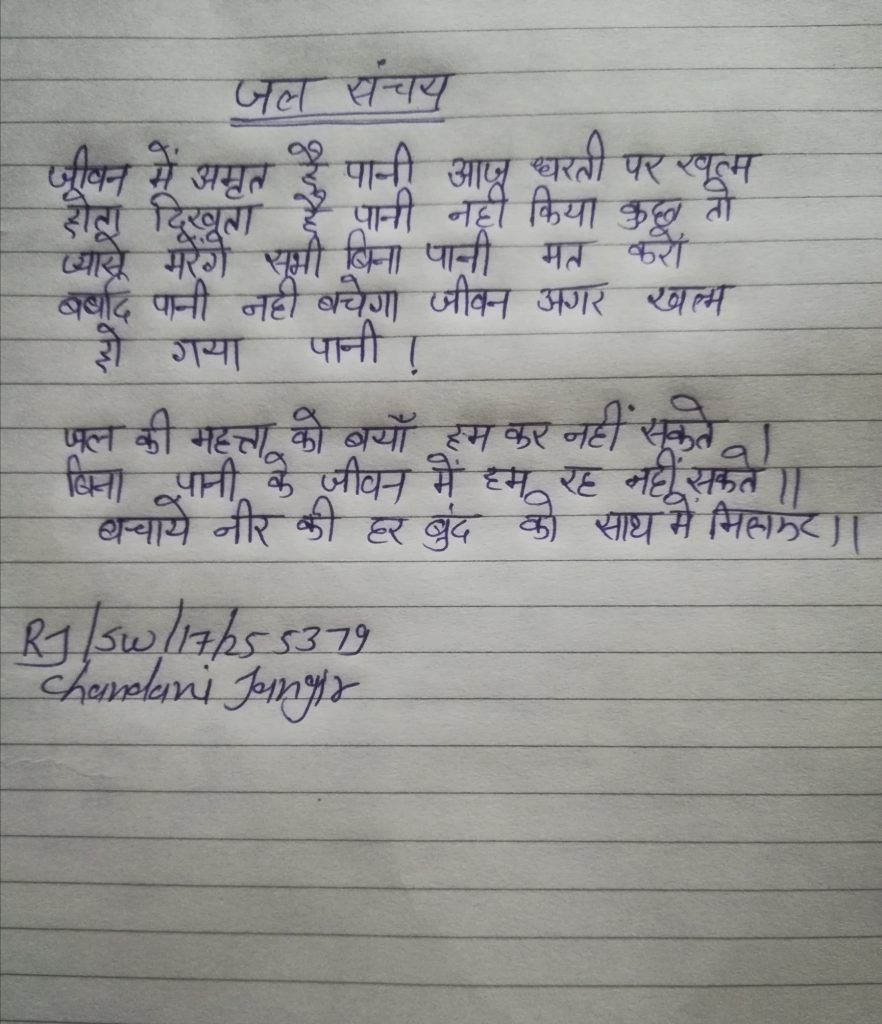 जल संचय
जीवन में अमृत है पानी आज धरती पर खत्म
होता दिखता है पानी नही किया कुछ तो
प्यासे मरेंगे सभी बिना पानी मत करो
बर्बाद पानी नही बचेगा जीवन अगर खत्म
हो गया पानी !
जल की महत्ता को बयाँ हम कर नहीं सकते ।
बिना पानी के जीवन में हम रह नहीं सकते ॥
बचाये नीर की हर बुंद को साथ में मिलकर ॥
RJ/SW/17/255379
Chandani Jangir